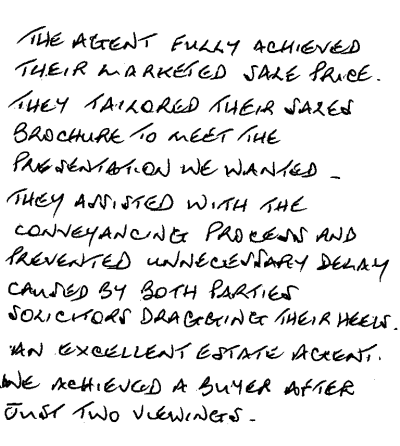 THE AGENT FULLY ACHIEVED
THEIR MARKETED SALE PRICE.
THEY TAILORED THEIR SALES
BROCHURE TO MEET THE
PRESENTATION WE WANTED -
THEY ASSISTED WITH THE
CONVEYANCING PROCESS AND
PREVENTED UNNECESSARY DELAY
CAUSED BY BOTH PARTIES
SOLICITORS DRAGGING THEIR HEELS.
AN EXCELLENT ESTATE AGENT.
WE ACHIEVED A BUYER AFTER
JUST TWO VIEWINGS -